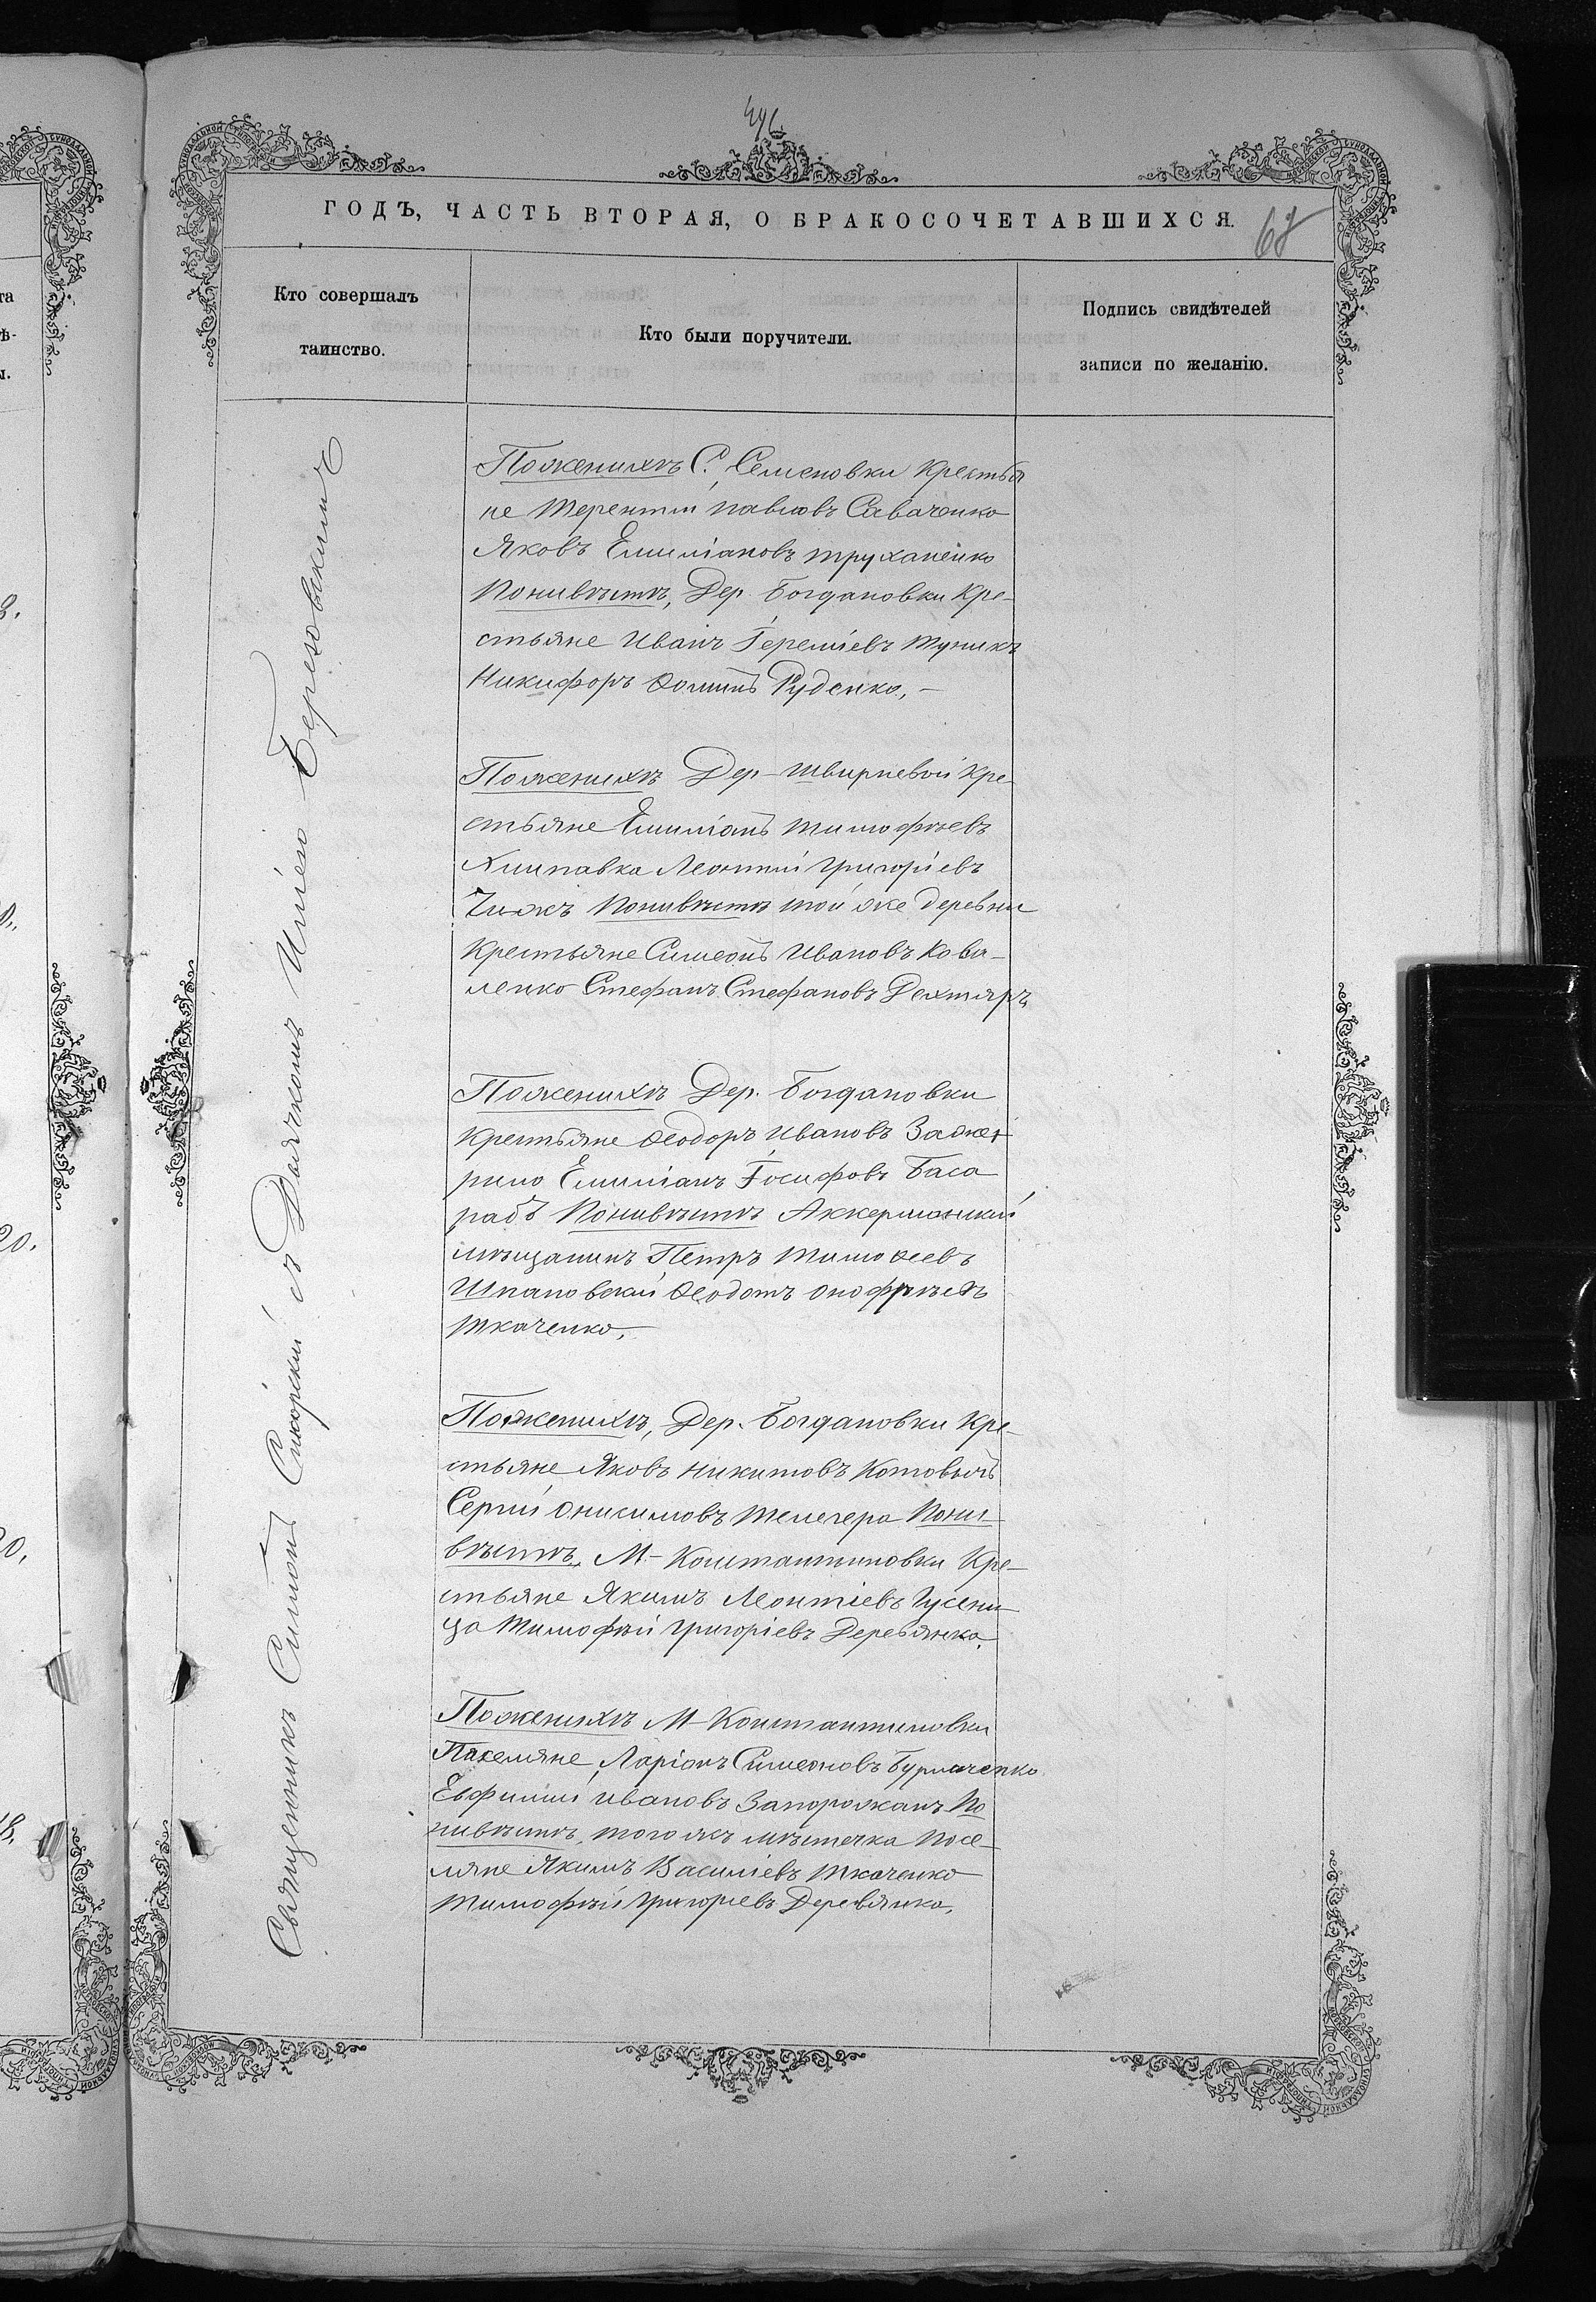 ГОДЪ, ЧАСТЬ ВТОРАЯ, О БРАКОСОЧЕТАВШИХСЯ.
68
Кто совершалъ
таинство.
Кто были поручители.
Подпись свидѣтелей
записи по желанію.
Священникъ Симеонъ Сикорскій съ Дьячкомъ Иліею Березовскимъ
Поженихѣ С. Семеновки Крестья
не Терентій Павловъ Саваченко
Яковъ Емиліановъ Труханенко
Понивѣстѣ, Дер. Богдановки Кре-
стьяне Иванъ Іереміевъ Туникъ
Никифоръ Ѳоминъ Руденко, –
Поженихѣ Дер – Швирневой Кре-
стьяне Емиліанъ Тимофѣевъ
Хлипавка Леонтій Григоріевъ
Чижъ Понивѣстѣ той же деревни
Крестьяне Симеонъ Ивановъ Кова-
ленко Стефанъ Стефановъ Дехтяръ
Поженихѣ Дер. Богдановки
Крестьяне Ѳеодоръ Ивановъ
Емиліанъ Іосифовъ Баса
рабъ Понивѣстѣ Аккерманскій
мѣщанинъ Петръ Тимоѳеевъ
Шпановскій Ѳеодотъ Онофріевъ
Ткаченко,
Поженихѣ, Дер. Богдановки Кре-
стьяне Яковъ Никитовъ
Сергій Онисимовъ Телегера Пони-
вѣстѣ, М – Константиновки Кре-
стьяне Якимъ Леонтіевъ Гусени-
ца Тимофѣй Григоріевъ Деревянко.
Поженихѣ М – Константиновки
Поселяне Ларіонъ Симеоновъ Бурлаченко
Евфимій Ивановъ Запорожанъ По
нивѣстѣ, того жъ мѣстечка Посе-
ляне Якимъ Василіевъ Ткаченко
Тимофѣй Григоріевъ Деревянко,